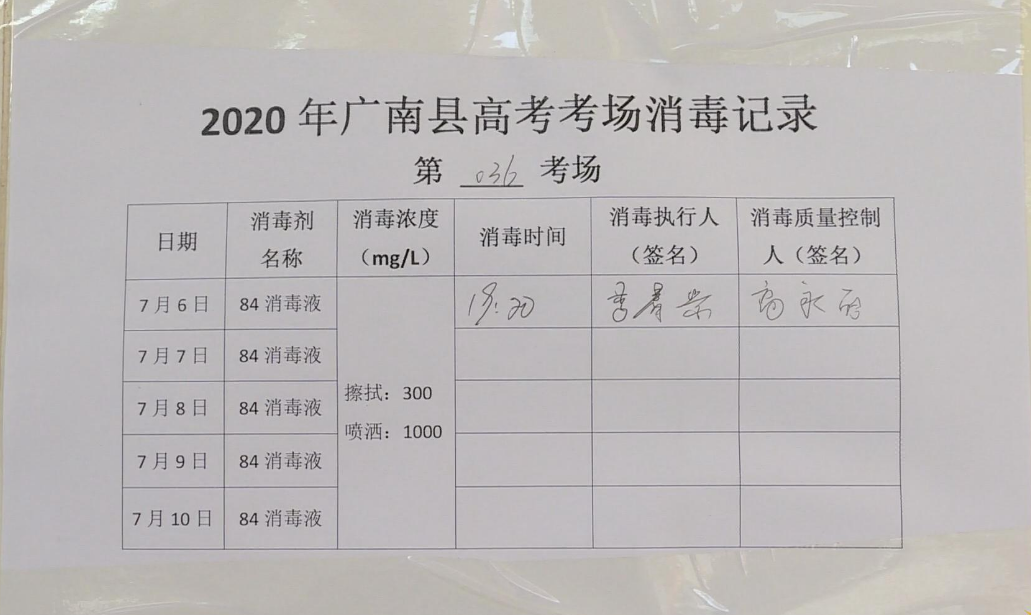 2020年广南县高考考场消毒记录
第 036 考场
日期 消毒剂名称 消毒浓度（mg/L） 消毒时间 消毒执行人（签名） 消毒质量控制人（签名）
7月6日 84消毒液
7月7日 84消毒液
7月8日 84消毒液
擦拭：300
喷洒：1000
7月9日 84消毒液
7月10日 84消毒液